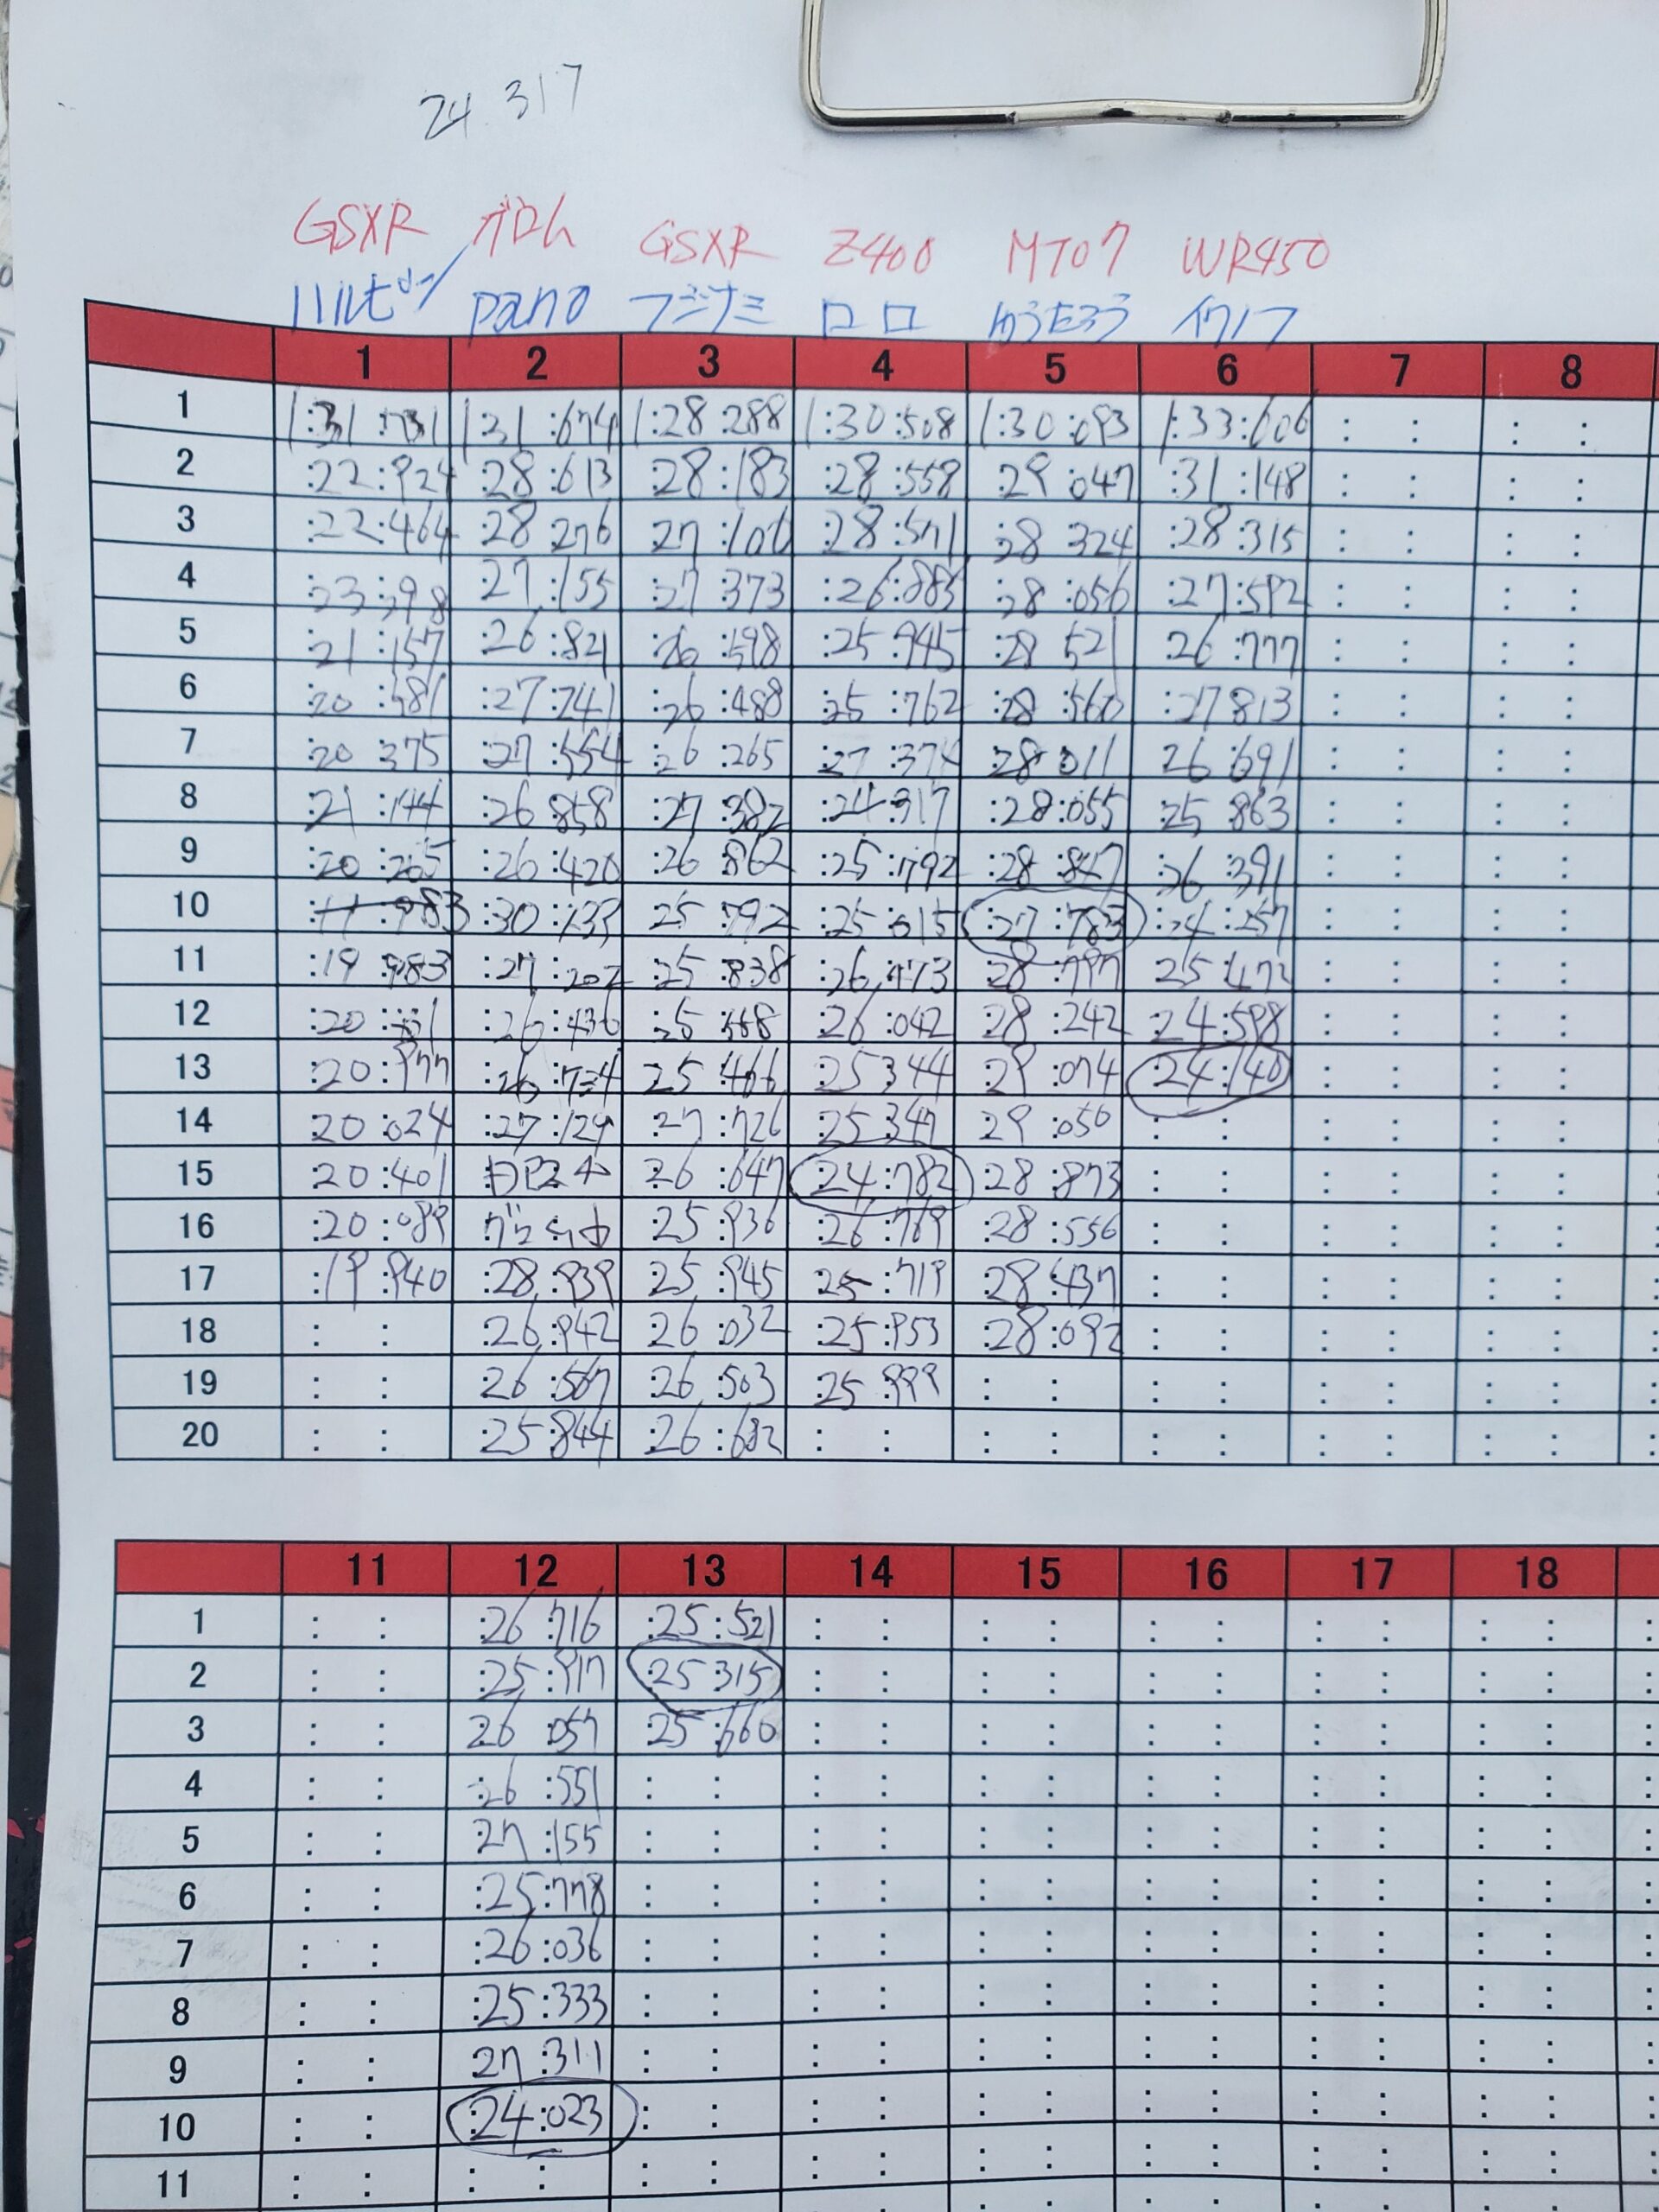 24 317
GSXR グロム GSXR Z400 MT07 WR450
ハルピン pano フジナミ ロロ ゆうたろう イクノフ
1 2 3 4 5 6 7 8
1 1:31 :731 1:31 :674 1:28 288 1:30:508 1:30:093 1:33:606 : : : :
2 :22:924 :28:613 :28:183 :28:558 :29 047 :31:148 : : : :
3 :22:464 :28 276 27:106 :28:571 :28 324 :28:315 : : : :
4 :23:398 :27:155 :27 373 :26:885 :28:056 :27:592 : : : :
5 :21:157 :26:821 :26:598 :25 945 :28 521 26:777 : : : :
6 :20:581 :27:241 :26:488 :25:762 :28:560 :27 813 : : : :
7 :20 375 :27:554 :26:265 :27:374 28 011 26:691 : : : :
8 :21:144 :26 858 :27:382 :24:917 :28:055 :25 863 : : : :
9 :20:265 :26:420 :26 862 :25:792 :28:847 :26:391 : : : :
10 :30:133 25 792 :25:015 :27:783 :24:257 : : : :
11 :19 983 :27:202 :25:838 :26,473 28:797 25:472 : : : :
12 :20 :26:436 :25 568 :26:042 28:242 24:598 : : : :
13 :20:977 :26:734 25:466 25 344 29:074 24:140 : : : :
14 20:024 :27:129 :27:726 :25 347 29:050 : : : : : :
15 20:401 26:647 24:782 28:873 : : : : : :
16 :20:089 25:936 :26:769 28:556 : : : : : :
17 :19:940 :28:939 25:945 25:719 28:437 : : : : : :
18 : : :26:942 26:032 25:953 :28:092 : : : : : :
19 : : 26:567 26:503 :25 999 : : : : : : : :
20 : : :25:844 :26:632 : : : : : : : : : :
11 12 13 14 15 16 17 18
1 : : :26:716 :25:521 : : : : : : : : : :
2 : : :25:917 :25 315 : : : : : : : : : :
3 : : 26 057 25:660 : : : : : : : : : :
4 : : :26:551 : : : : : : : : : : : :
5 : : 27:155 : : : : : : : : : : : :
6 : : :25:778 : : : : : : : : : : : :
7 : : :26:036 : : : : : : : : : : : :
8 : : :25:333 : : : : : : : : : : : :
9 : : 27:311 : : : : : : : : : : : :
10 : : :24:023 : : : : : : : : : : : :
11 : : : : : : : : : : : : : : : :